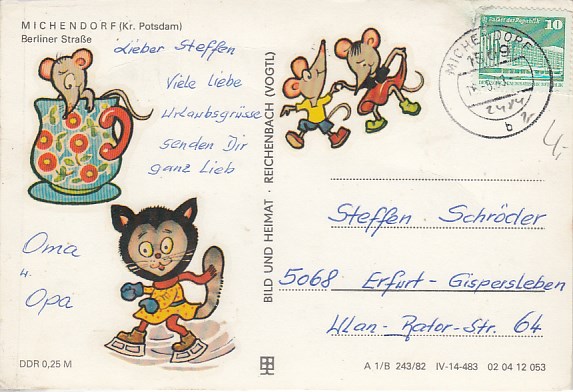 MICHENDORF (Kr. Potsdam)
Berliner Straße
Lieber Steffen
Viele liebe
Urlaubsgrüsse
senden Dir
ganz lieb
Oma
u.
Opa
DDR 0,25 M
BILD UND HEIMAT · REICHENBACH (VOGTL)
10
MICHENDORF
b
Steffen Schröder
5068 Erfurt-Gispersleben
A 1/B 243/82 IV-14-483 02 04 12 053